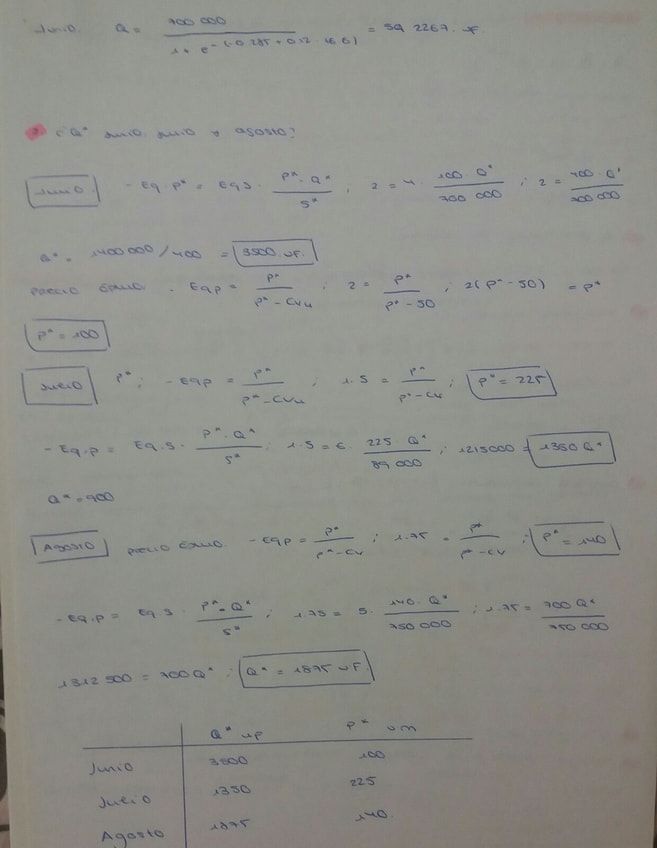 Junio. Q = 700 000 / 1 + e^-(-0.285 + 0.12 · 16.6) = 592267. uf.
¿Q* Junio. Julio y agosto?
Junio - Eq.p* = Eq.s · P*·Q* / S* ; 2 = 4 · 100 · Q* / 700 000 ; 2 = 400 · Q* / 700 000
Q* = 1400 000 / 400 = 3500 uf.
PRECIO - Eqp = P* / P* - CVu ; 2 = P* / P* - 50 ; 2(P* - 50) = P*
P* = 100
Julio P* ; - Eqp = P* / P* - CVu ; 1.5 = P* / P* - CV ; P* = 225
- Eq.p = Eq.s · P*·Q* / S* ; 1.5 = 6 · 225 · Q* / 000 ; 1215000 = 1350 Q*
Q* = 900
Agosto PRECIO - Eqp = P* / P* - CV ; 1.75 = P* / P* - CV ; P* = 140
- Eq.p = Eq.s · P*·Q* / S* ; 1.75 = 5 · 140 · Q* / 750 000 ; 1.75 = 700 Q* / 750 000
1312 500 = 700 Q* ; Q* = 1875 uf.
Q* up P* um
Junio 3500 100
Julio 1350 225
Agosto 1875 140.